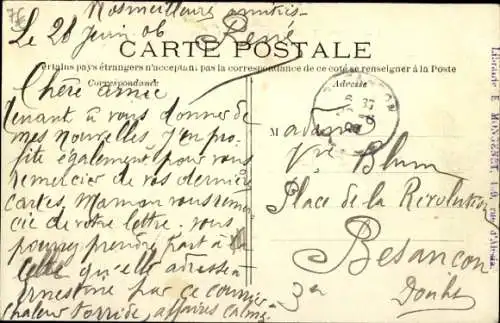 Nos meilleures amitiés
Le 28 Juin 06 René
CARTE POSTALE
Certains pays étrangers n'acceptant pas la correspondance de ce coté se renseigner à la Poste
Correspondance
Adresse
Chère amie
Tenant à vous donner de
mes nouvelles J'en pro-
fite également pour vous
remercier de vos dernière
cartes, Maman vous remer
cie de votre lettre. Vous
pouvez prendre part à
celle qu'elle adresse à
Ernestine par ce courrier
chaleur torride, affaires calmes
M adame
Blum
Place de la Révolution
Besançon
Doubs
Librairie E.